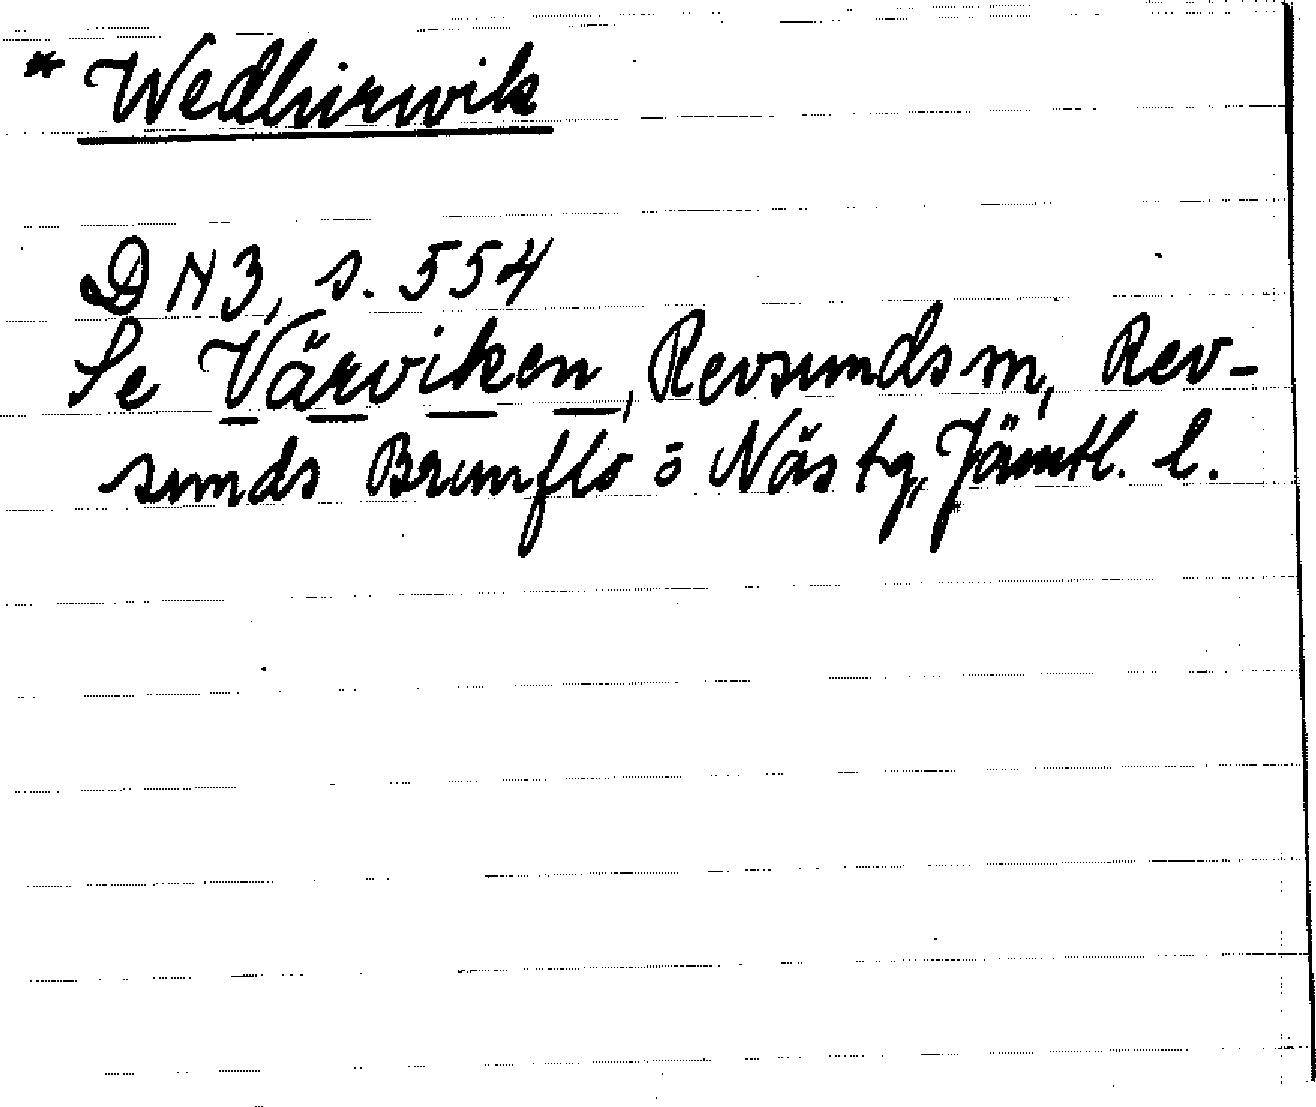 * Wedhirwik
DN 3, s. 554
Se Värviken, Revsunds m, Rev-
sunds Brunflo o Näs tg, Jämtl. l.